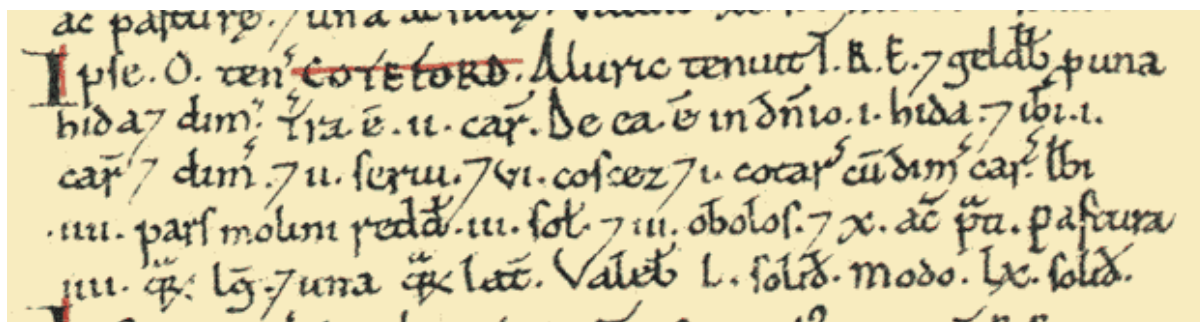 ac pasturę. ⁊ una
Ipse. O. ten' COTEFORD. Aluric tenuit T. R. E. ⁊ geldb̄ p una
hida ⁊ dim̄. Tra ē. ii. car̄. De ea ē in dn̄io. i. hida. ⁊ ibi. i.
car̄ ⁊ dim̄. ⁊ ii. serui. ⁊ vi. coscez ⁊ i. cotar' cū dim̄ car̄. Ibi
.iiii. pars molini redd̄. iii. sol̄. ⁊ iii. obolos. ⁊ x. ac̄ pti. Pastura
iiii. qr̄. lḡ. ⁊ una qr̄ lat̄. Valeb̄ L. solid̄. modo. lx. solid̄.